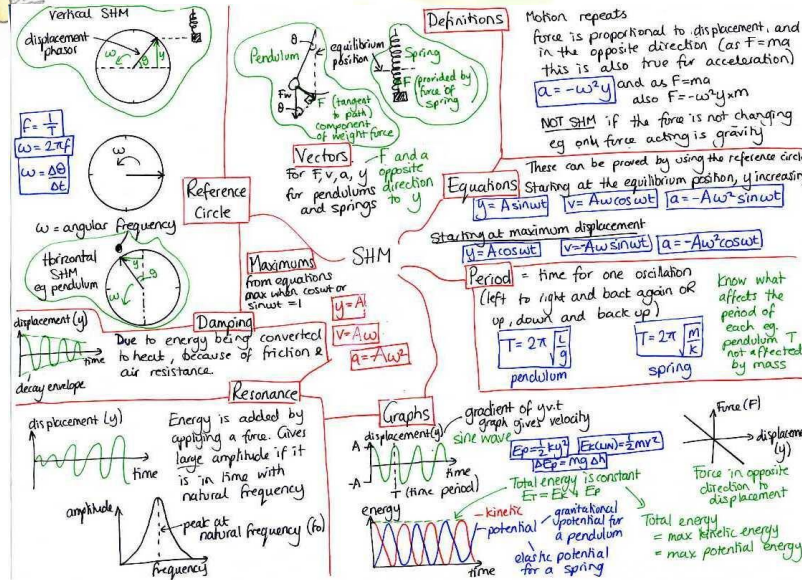 Vertical SHM
displacement
phasor
ω
θ
y
y
f = 1/T
ω = 2πf
ω = Δθ/Δt
ω
Reference
Circle
ω = angular frequency
Horizontal
SHM
eg pendulum
y
θ
ω
Pendulum
θ
equilibrium
position
Spring
Fw
θ
F (tangent
to path)
component
of weight force
F (provided by
force of
spring)
Vectors
For F, v, a, y
for pendulums
and springs
F and a
opposite
direction
to y
Definitions
Motion repeats
force is proportional to displacement, and
in the opposite direction (as F=ma
this is also true for acceleration)
a = -ω²y and as F=ma
also F=-ω²y×m
NOT SHM if the force is not changing
eg only force acting is gravity
Equations
These can be proved by using the reference circle
Starting at the equilibrium position, y increasing
y = Asinωt v = Aωcosωt a = -Aω²sinωt
Starting at maximum displacement
y = Acosωt v = -Aωsinωt a = -Aω²cosωt
SHM
Maximums
from equations
max when cosωt or
sinωt = 1
y = A
v = Aω
a = -Aω²
Period = time for one oscillation
(left to right and back again OR
up, down and back up)
T = 2π√(L/g)
pendulum
T = 2π√(m/k)
spring
Know what
affects the
period of
each eg.
pendulum T
not affected
by mass
Damping
displacement (y)
time
decay envelope
Due to energy being converted
to heat, because of friction &
air resistance.
Resonance
displacement (y)
time
Energy is added by
applying a force. Gives
large amplitude if it
is in time with
natural frequency
amplitude
peak at
natural frequency (fo)
frequency
Graphs
gradient of y v. t
graph gives velocity
displacement (y)
sine wave
A
-A
time
T (time period)
Ep = ½ky² Ek(LIN) = ½mv²
ΔEp = mgΔh
Total energy is constant
ET = Ek + Ep
energy
time
kinetic
potential
gravitational
potential for
a pendulum
elastic potential
for a spring
Total energy
= max kinetic energy
= max potential energy
Force (F)
displacement
(y)
Force in opposite
direction to
displacement